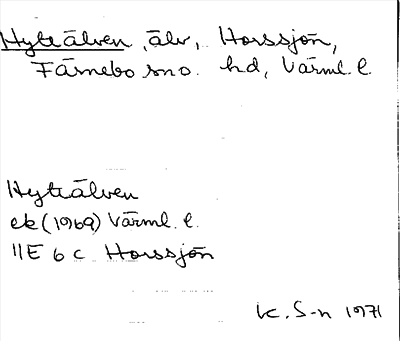 Hyttälven, älv, Horssjön,
Färnebo sno. hd, Värml. l.
Hyttälven
ek (1969) Värml. l.
11E 6 c Horssjön
K. S-n 1971